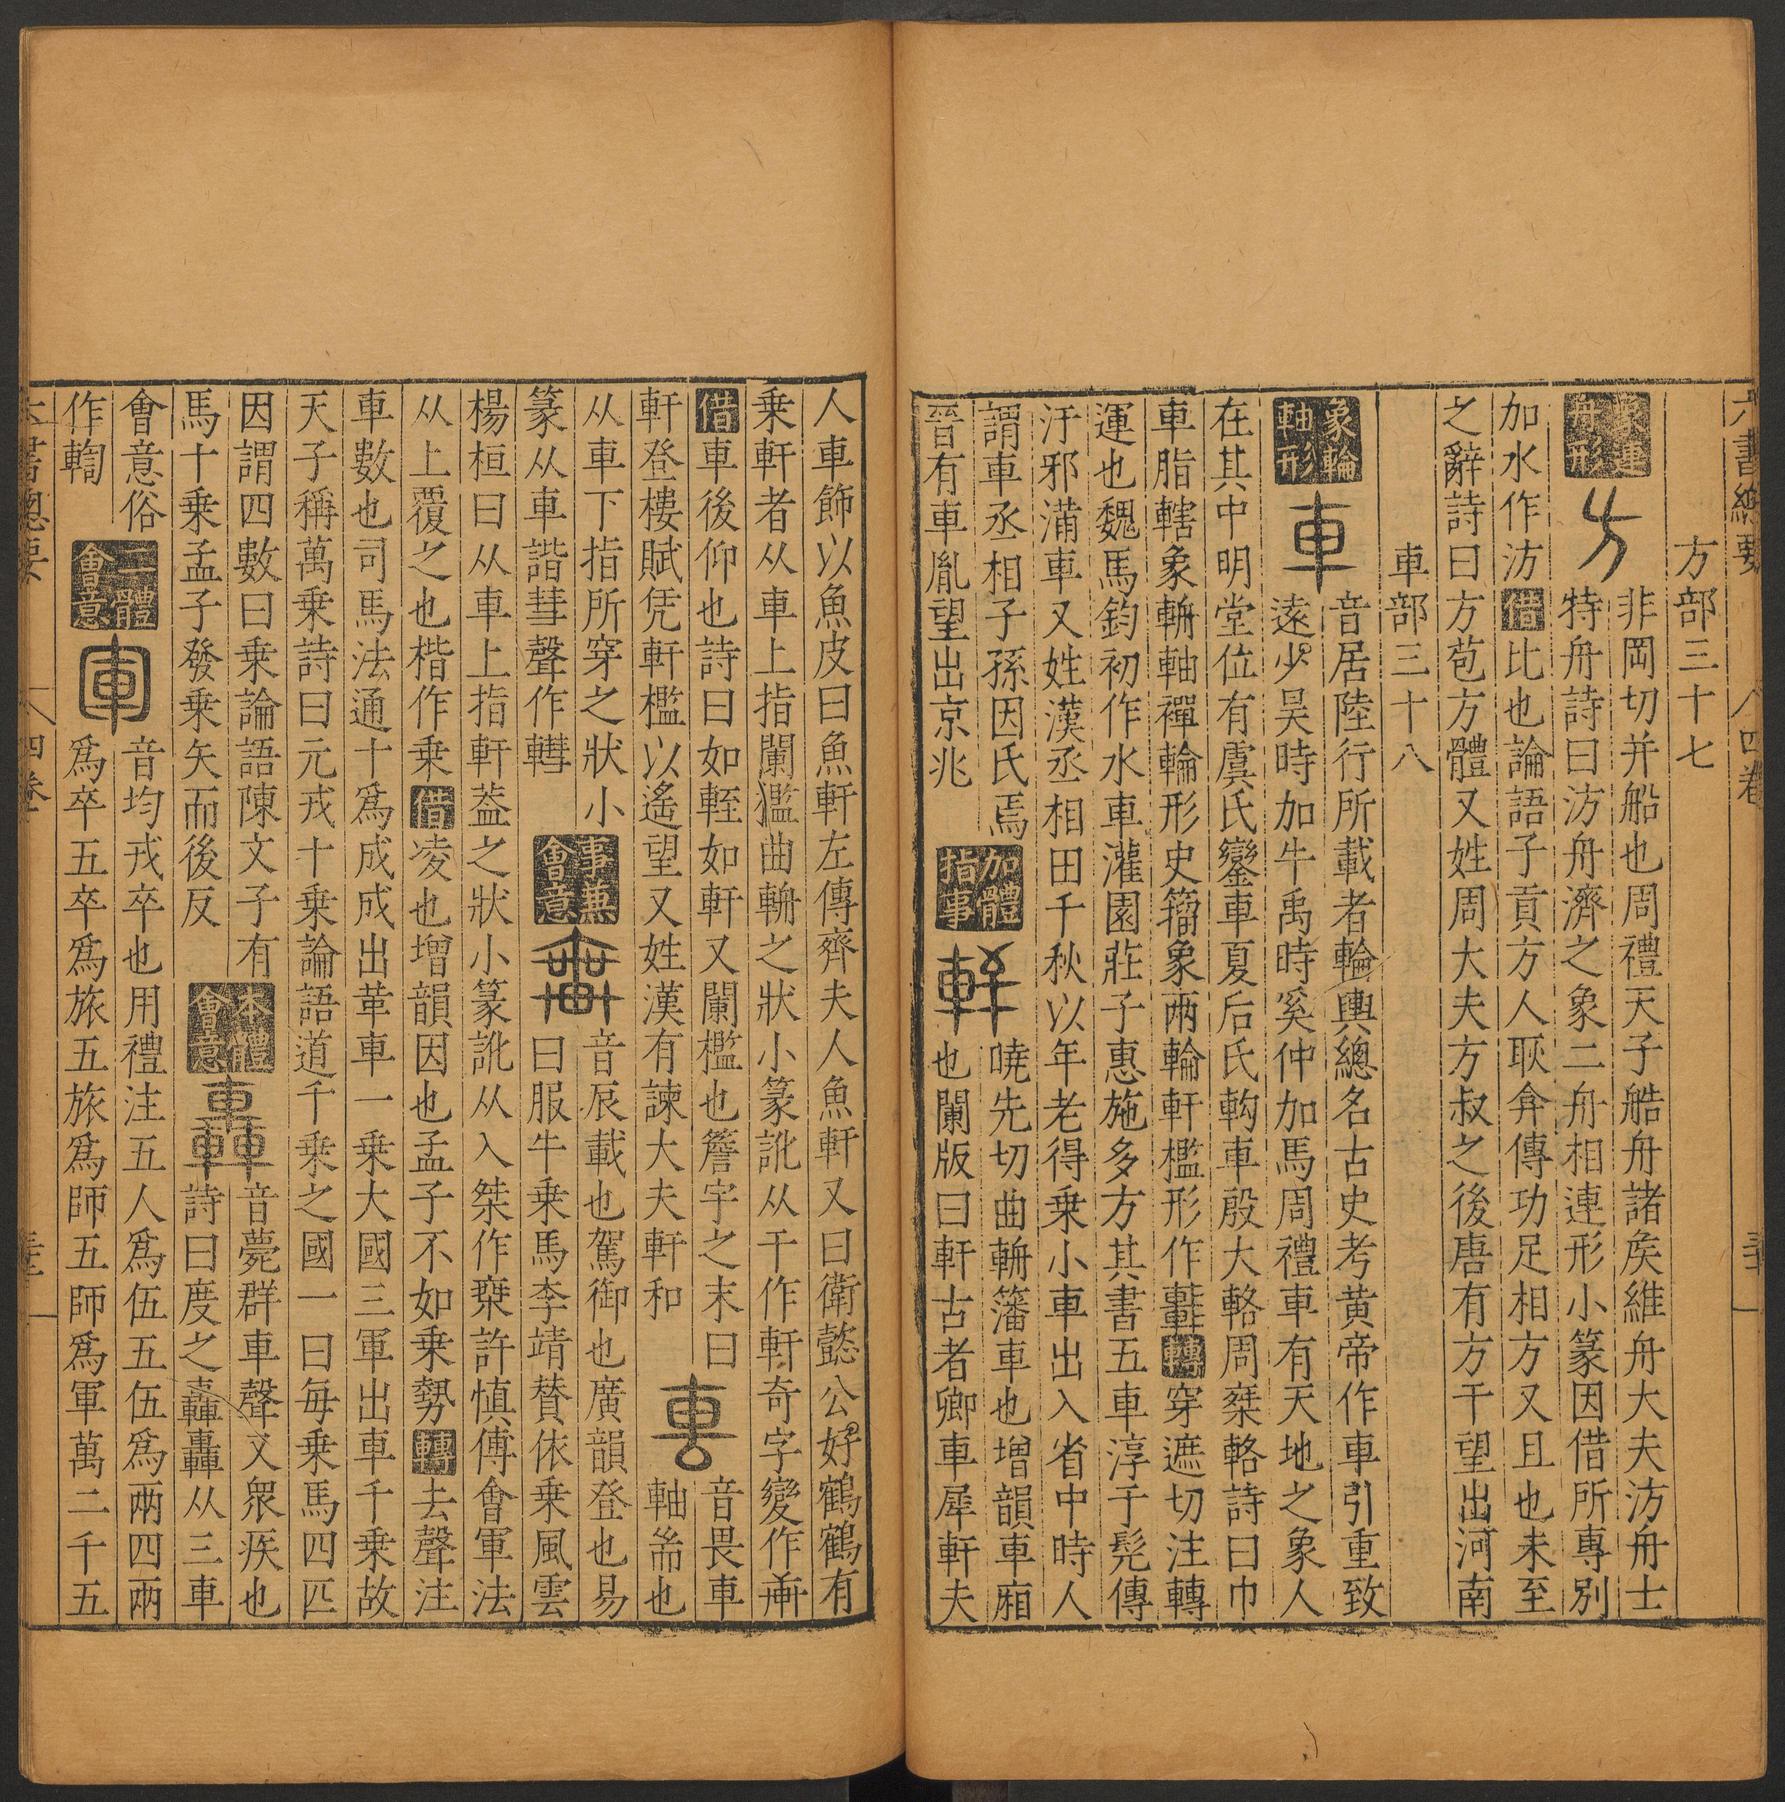 六書總要 四卷
方部三十七
象連舟形 非岡切并船也周禮天子艁舟諸矦維舟大夫汸舟士
特舟詩曰汸舟濟之象二舟相連形小篆因借所專別
加水作汸借比也論語子貢方人耿弇傳功足相方又且也未至
之辭詩曰方苞方體又姓周大夫方叔之後唐有方干望出河南
車部三十八
象輪軸形 車 音居陸行所載者輪輿總名古史考黄帝作車引重致
遠少昊時加牛禹時奚仲加馬周禮車有天地之象人
在其中明堂位有虞氏鑾車夏后氏軥車殷大輅周椉輅詩曰巾
車脂轄象輧軸襌輪形史籀象兩輪軒檻形作轉穿遮切注轉
運也魏馬鈞初作水車灌園莊子惠施多方其書五車淳于髠傳
汙邪滿車又姓漢丞相田千秋以年老得乗小車出入省中時人
謂車丞相子孫因氏焉
晉有車胤望出京兆
加體指事 軒 嘵先切曲輧籓車也增韻車廂
也闌版曰軒古者卿車犀軒夫
人車飾以魚皮曰魚軒左傳齊夫人魚軒又曰衛懿公好鶴鶴有
乗軒者从車上指闌檻曲輧之狀小篆訛从干作軒奇字變作
借車後仰也詩曰如輊如軒又闌檻也簷宇之末曰
軒登樓賦凭軒檻以遙望又姓漢有諫大夫軒和
音畏車
軸耑也
从車下指所穿之狀小
篆从車諧彗聲作轊
事兼會意 音辰載也駕御也廣韻登也易
曰服牛乗馬李靖賛依乗風雲
楊桓曰从車上指軒葢之狀小篆訛从入桀作椉許慎傅會軍法
从上覆之也楷作乗借凌也增韻因也孟子不如乗勢轉去聲注
車數也司馬法通十爲成成出革車一乗大國三軍出車千乗故
天子稱萬乗詩曰元戎十乗論語道千乗之國一曰每乗馬四匹
因謂四數曰乗論語陳文子有
馬十乗孟子發乗矢而後反
本體會意 轟 音薨群車聲又衆疾也
詩曰度之轟轟从三車
會意俗
作輷
二體會意 軍 音均戎卒也用禮注五人爲伍五伍爲兩四兩
爲卒五卒爲旅五旅爲師五師爲軍萬二千五
六書總要 四卷